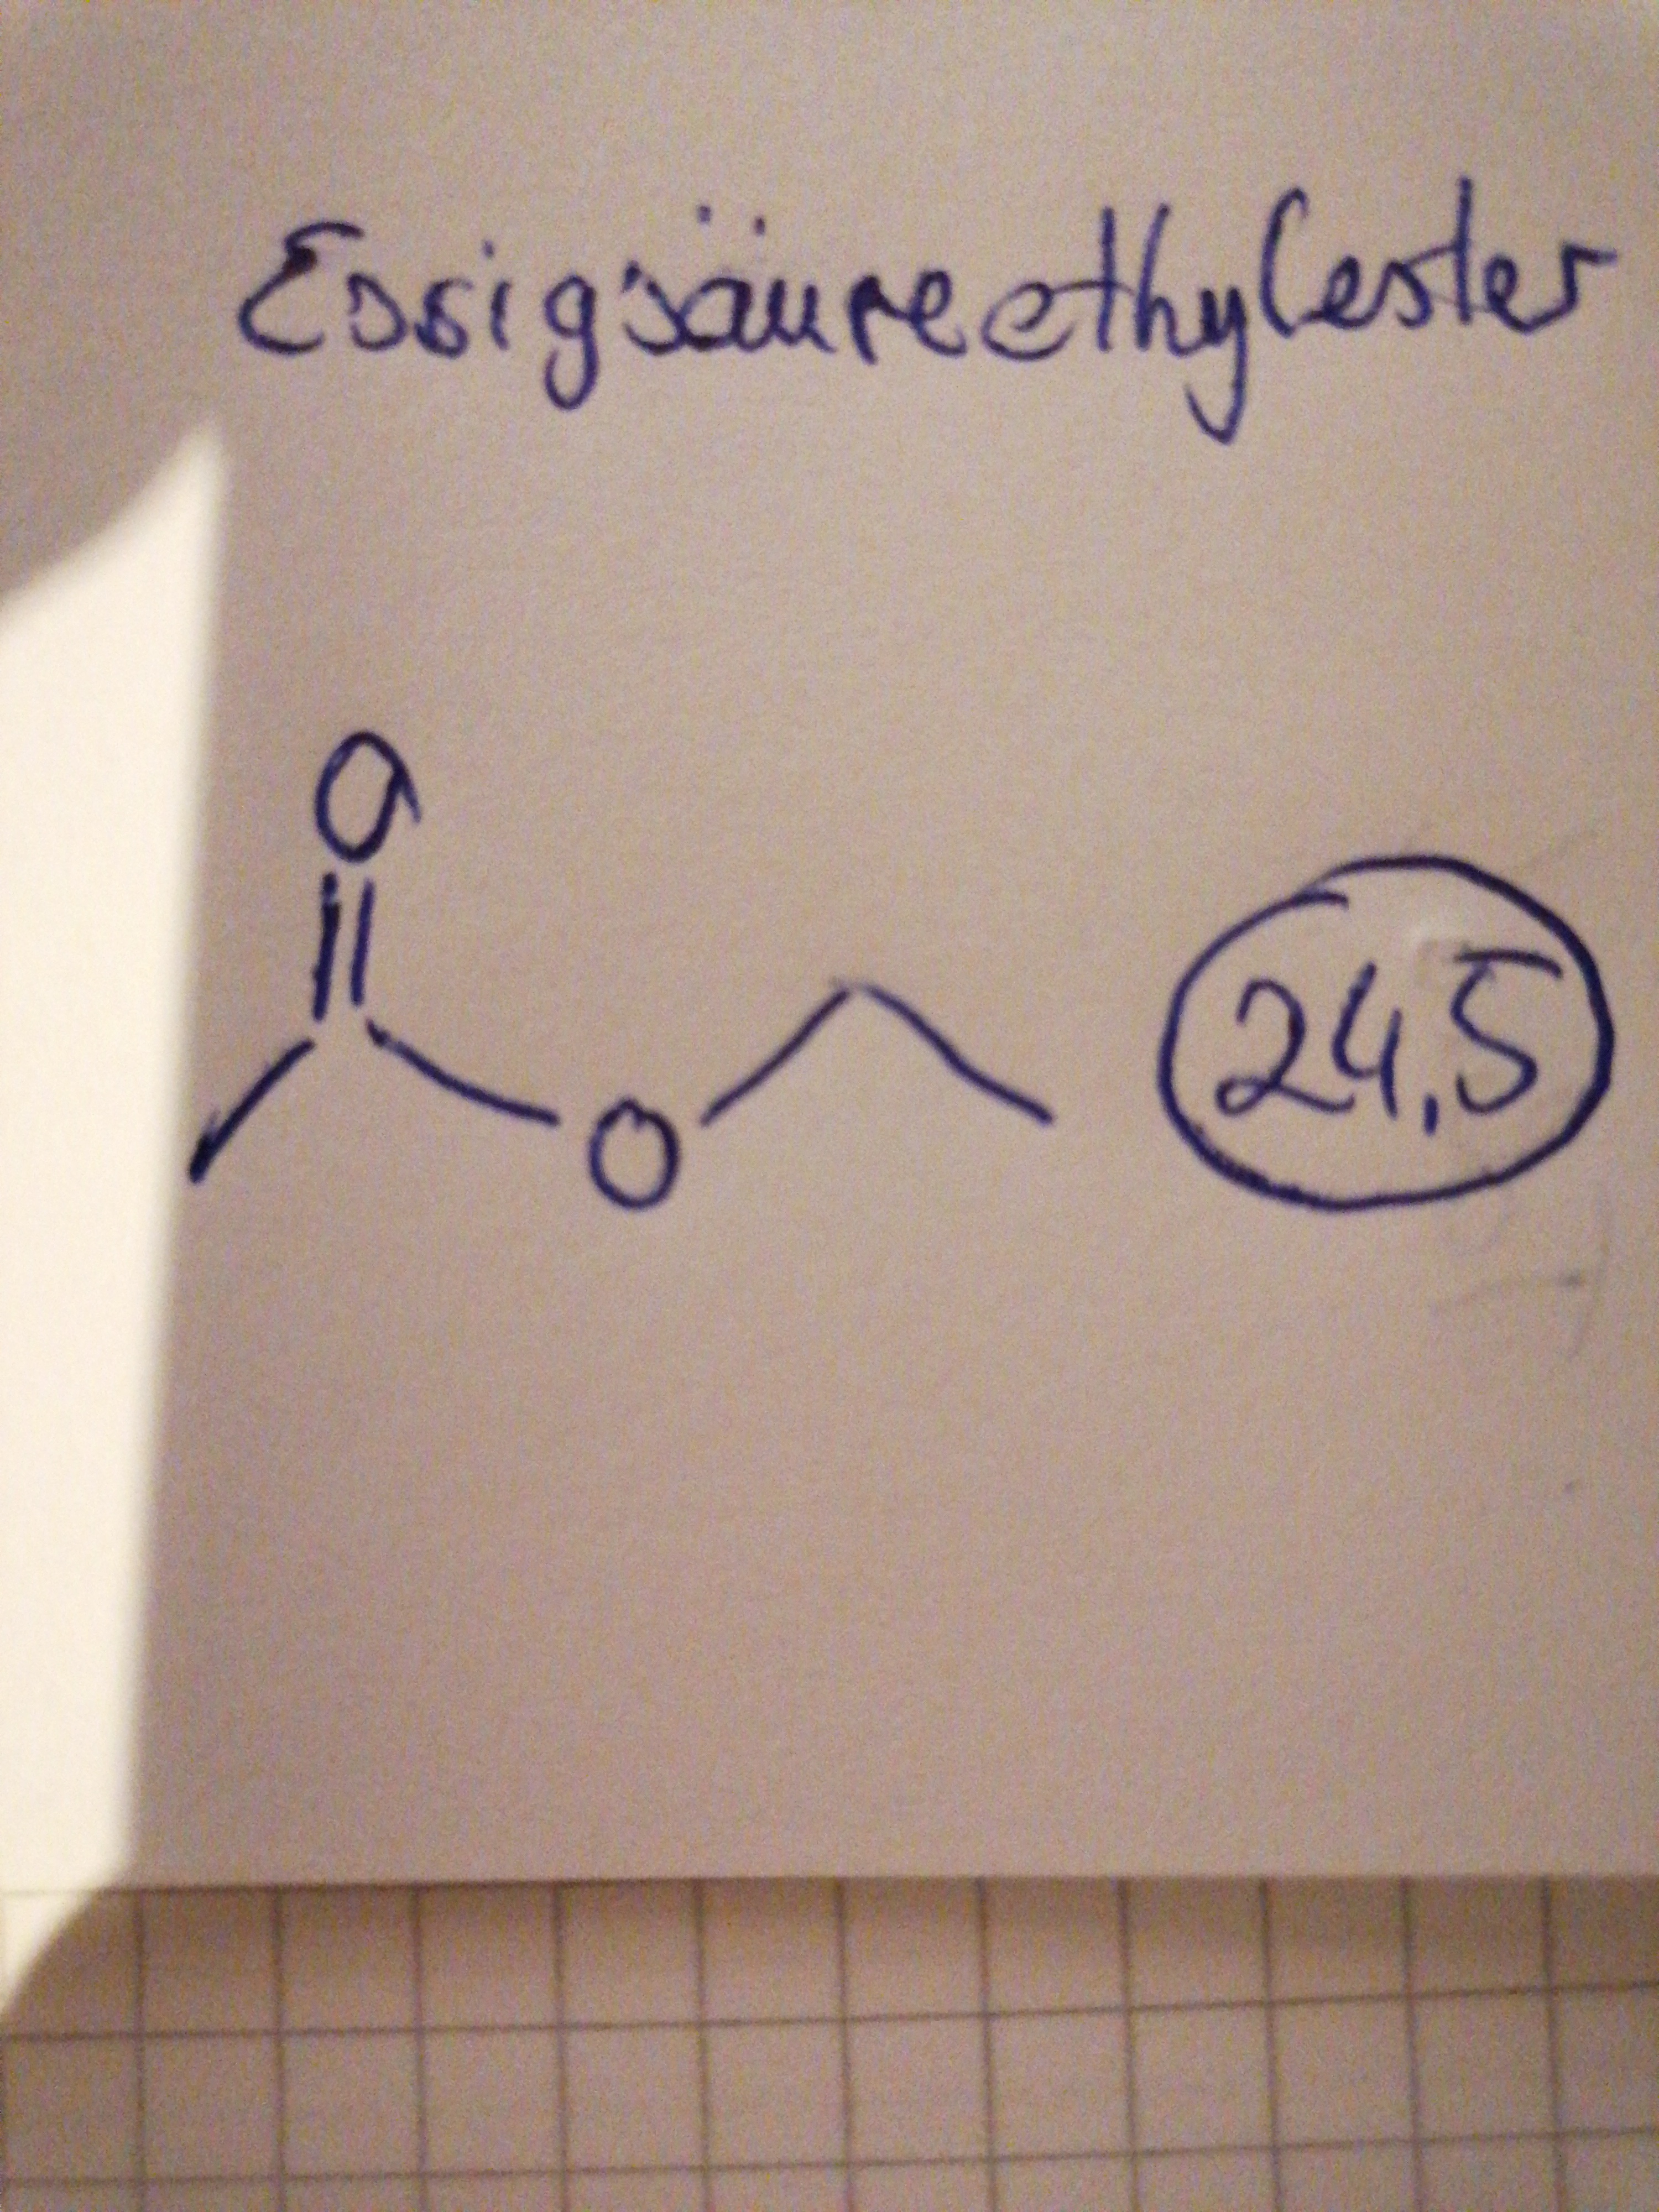 Essigsäureethylester
O
O
24,5